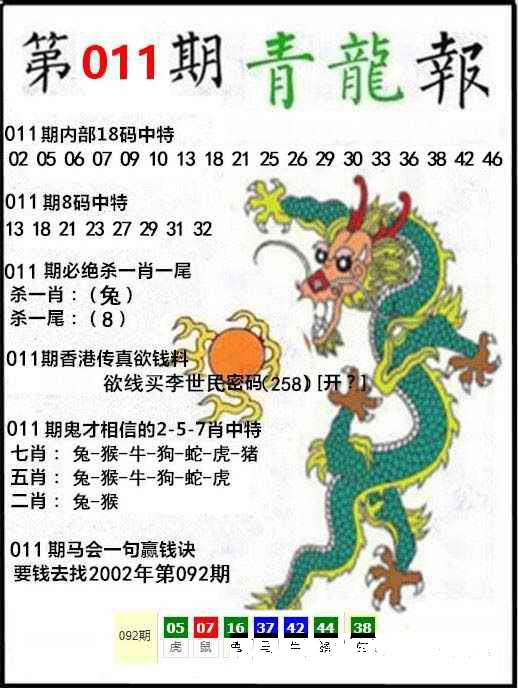 第011期青龍報
011期内部18码中特
02 05 06 07 09 10 13 18 21 25 26 29 30 33 36 38 42 46
011期8码中特
13 18 21 23 27 29 31 32
011期必绝杀一肖一尾
杀一肖：(兔)
杀一尾：(8)
011期香港传真欲钱料
欲线买李世民密码(258)[开?]
011期鬼才相信的2-5-7肖中特
七肖：兔-猴-牛-狗-蛇-虎-猪
五肖：兔-猴-牛-狗-蛇-虎
二肖：兔-猴
011期马会一句赢钱诀
要钱去找2002年第092期
092期 05 07 16 37 42 44 38
虎 鼠